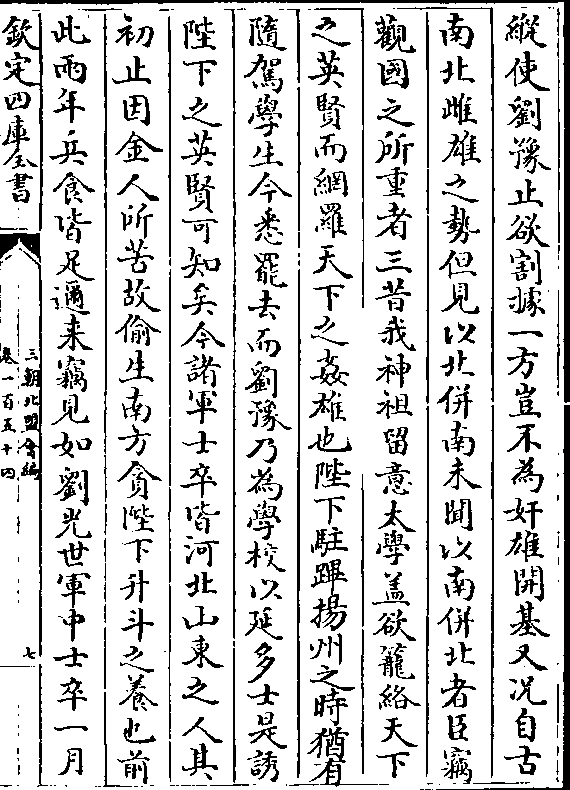 縱使劉豫止欲割據一方豈不為奸雄開基又况自古
南北雌雄之勢但見以北併南未聞以南併北者臣竊
觀國之所重者三昔我神祖留意太學盖欲籠絡天下
之英賢而網羅天下之姦雄也陛下駐蹕揚州之時猶有
隨駕學生今悉罷去而劉豫乃為學校以延多士是誘
陛下之英賢可知矣今諸軍士卒皆河北山東之人其
初止因金人所苦故偷生南方貪陛下升斗之養也前
此兩年兵食皆足邇来竊見如劉光世軍中士卒一月
欽定四庫全書
三朝北盟會編
卷一百五十四
七